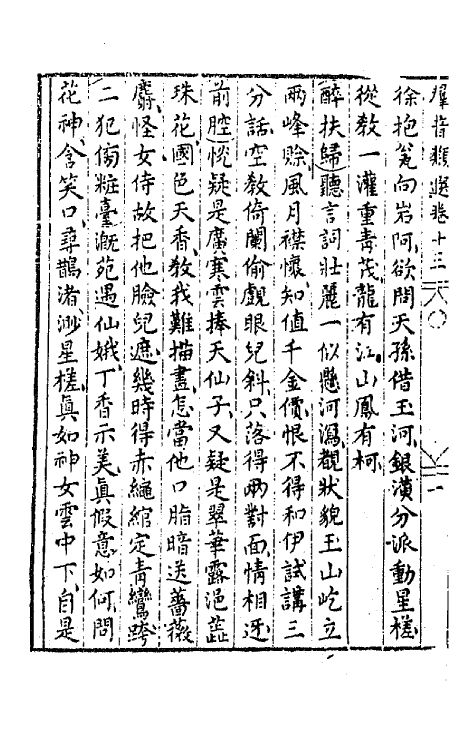 羣音類選卷十三 一
徐抱瓮向岩阿欲問天孫借玉河銀漢分派動星槎
從教一灌重青茂龍有江山鳳有柯
醉扶歸聽言詞壯麗一似懸河瀉觀狀貌玉山屹立
兩峰賒風月襟懷知值千金價恨不得和伊試講三
分話空教倚闌偷覷眼兒斜只落得兩對面情相迓
前腔恍疑是廣寒雲捧天仙子又疑是翠華露浥蕋
珠花國色天香教我難描畫怎當他口脂暗送薔薇
麝怪女侍故把他臉兒遮幾時得赤繩綰定青鸞跨
二犯傍粧臺漑苑遇仙娥丁香示美眞假意如何問
花神含笑口尋鵲渚渺星槎眞如神女雲中下自是